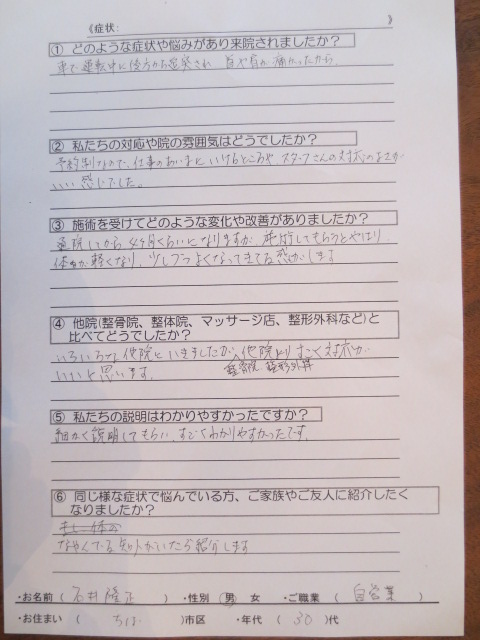 《症状: 》
① どのような症状や悩みがあり来院されましたか?
車で運転中に後方から追突され 首や肩が痛かったから.
② 私たちの対応や院の雰囲気はどうでしたか?
予約制なので、仕事のあいまに いけるところや スタッフさんの対応のよさが
いい感じでした。
③ 施術を受けてどのような変化や改善がありましたか?
通院してから 4ヶ月くらいになりますが、施術してもらうとやはり
体が軽くなり、少しづつよくなってきてる感じがします
④ 他院(整骨院、整体院、マッサージ店、整形外科など)と
比べてどうでしたか?
いろいろな他院に いきましたが、他院より すごく対応が
整骨院 整形外科
いいと思います。
⑤ 私たちの説明はわかりやすかったですか?
細かく説明してもらい、すごくわかりやすかったです.
⑥ 同じ様な症状で悩んでいる方、ご家族やご友人に紹介したく
なりましたか?
なやんでる 知人がいたら紹介します
・お名前 ( 石井 隆正 ) ・性別 男 女 ・ご職業 ( 自営業 )
・お住まい ( ちば )市区 ・年代 ( 30 )代